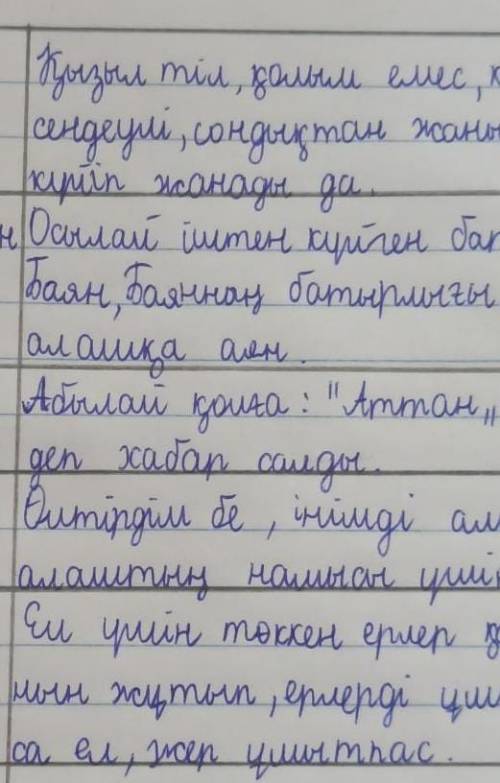 Қызыл тіл, қолым емес,
сендеулі, сондықтан
күйіп жанады да.
Осылай іштен күйген
Баян, Баянның батырлығы
алашқа аян.
Абылай қолға: "Аттан"
деп хабар салды.
Өлтірдім бе, інімді
алаштың намысы үшін
Ел үшін төккен ерлер
нын жұтып, ерлерді
са ел, жер ұмытпас.